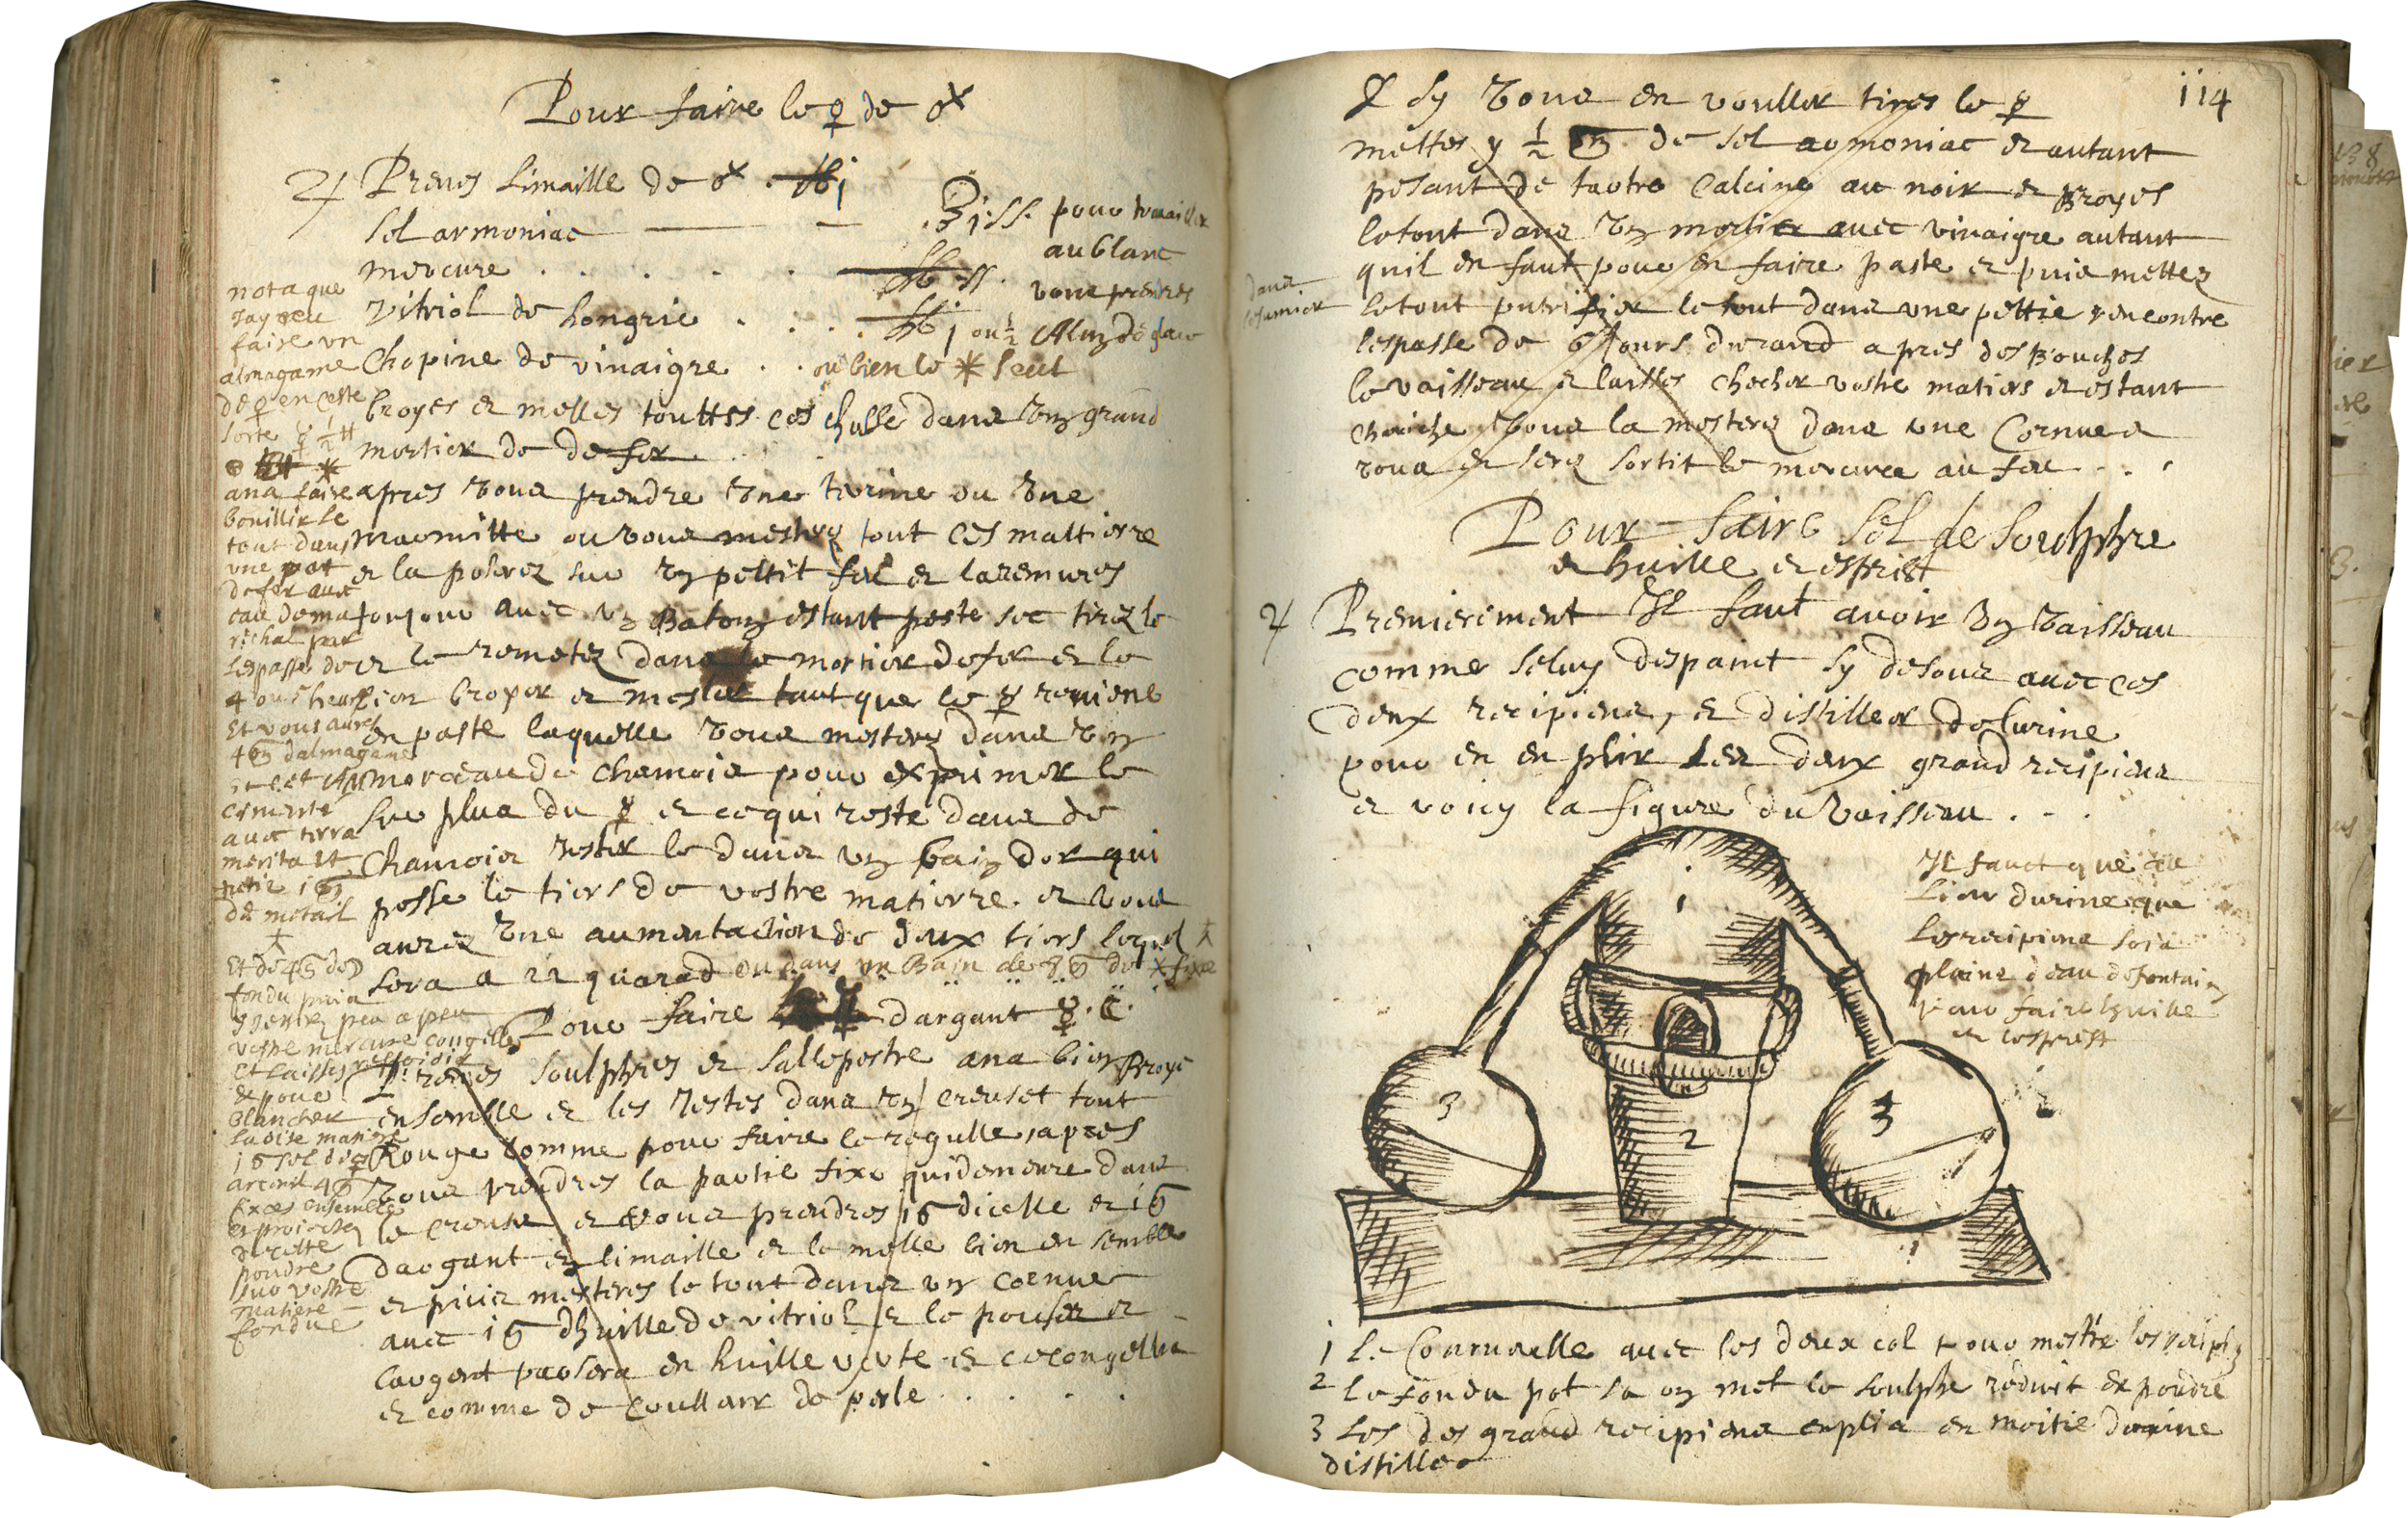 Pour faire le ♀ de ♂
♃ Prenes limaille de ♂ . ℔j
sel armoniac — ʒj.ss. pour travailler
au blanc
mercure . . . . . ℔ ss. vous prenres
vitriol de hongrie . . . . ℔j ou ½ Alun de glace
Chopine de vinaigre . . ou bien le ✶ seul
broyes et melles touttes ces chosse dans un grand
mortier de de fer . . .
apres vous prendre une terine ou une
marmitte ou vous mesterz tout ces mattierre
et la poserez sur un pettit feu et la remures
toujour avec un Baton estant paste sec tirez le
et le remetez dans le mortier de fer et le
bien broyer et mesler tant que le ☿ reviene
en paste laquelle vous mesterz dans un
morceau de chamois pour exprimer le
sur plus du ☿ et ce qui reste dans de
chamois rester le dans un bain dor qui
posse le tiers de vostre matierre . et vous
aurez une aumentation de deux tiers lequel
sera a 22 quarad ou dans un Bain de 8
Pour faire dargant ☿ . ☾ .
Prenes soulphres et sallepestre ana bien Broye
ensemble et les restes dans un creuset tout
Rouge comme pour faire le regulle, apres
vous prendres la partie fixe qui demeure dans
le creuse et vous prendres 16 dicelle et 16
dargant en limaille et le melle bien en semble
et puis mesteres le tout dans un cornue
avec 16 dhuille de vitriol et le pouser et
largent passera en huille verte et ce congellia
et comme de coullarr de perle . . . .
nota que
Jay veu
faire un
almagame
de ☿ en ceste
sorte ☿ ½ ℔
ana faire
bouillir le
tout dans
une pot
de fer avec
eau de ma
richal par
lespasse de
4 ou 5 heur
Et vous aures
4 dalmagame
cimenté
avec terra
merita et
de metail
fondu puis
y jetter peu a peu
vostre mercure congellé
et laisses reffroidir
Et pour
Blancher
ladite matiere
fixes ensemble
et proiectez
de cette
poudre
sur vostre
matiere
fondue
114
& sy vous en voulles tires le ☿
mettes y ½ de sel armoniac et autant
pesant de tartre calcine au noir et Broyes
le tout dans un mortier avec vinaigre autant
quil en faut pour en faire paste et puis mettez
dans
le fumier
le tout putrifier le tout dans une pettie rencontre
lespasse de 6 Jours durand apres desBouches
le vaisseau et laisses checher vostre matiere et estant
chaiche vous la mesterz dans une Cornue et
vous en serez sortit le mercure au feu . . .
Pour faire sel de soulphre
et huille et esprist
♃ Premierement Il faut avoir un vaisseau
comme seluy despaint sy desous avec ces
deux recipiens, et distiller de lurine
pour en en plir Les deux grand recipiens
et voicy la figure du vaisseau . . .
Il fauct que au
Lieu durine que
Les recipiens soia
plaine deau de fontain
pour faire lhuille
et lesprist
1
2
3
3
1 le Cournuelle avec les deux col pour mestre les recipi
2 le fondu pot la on met le soulphe reduit en poudre
3 les des grand recipiens emplis en moitie durine
distillee